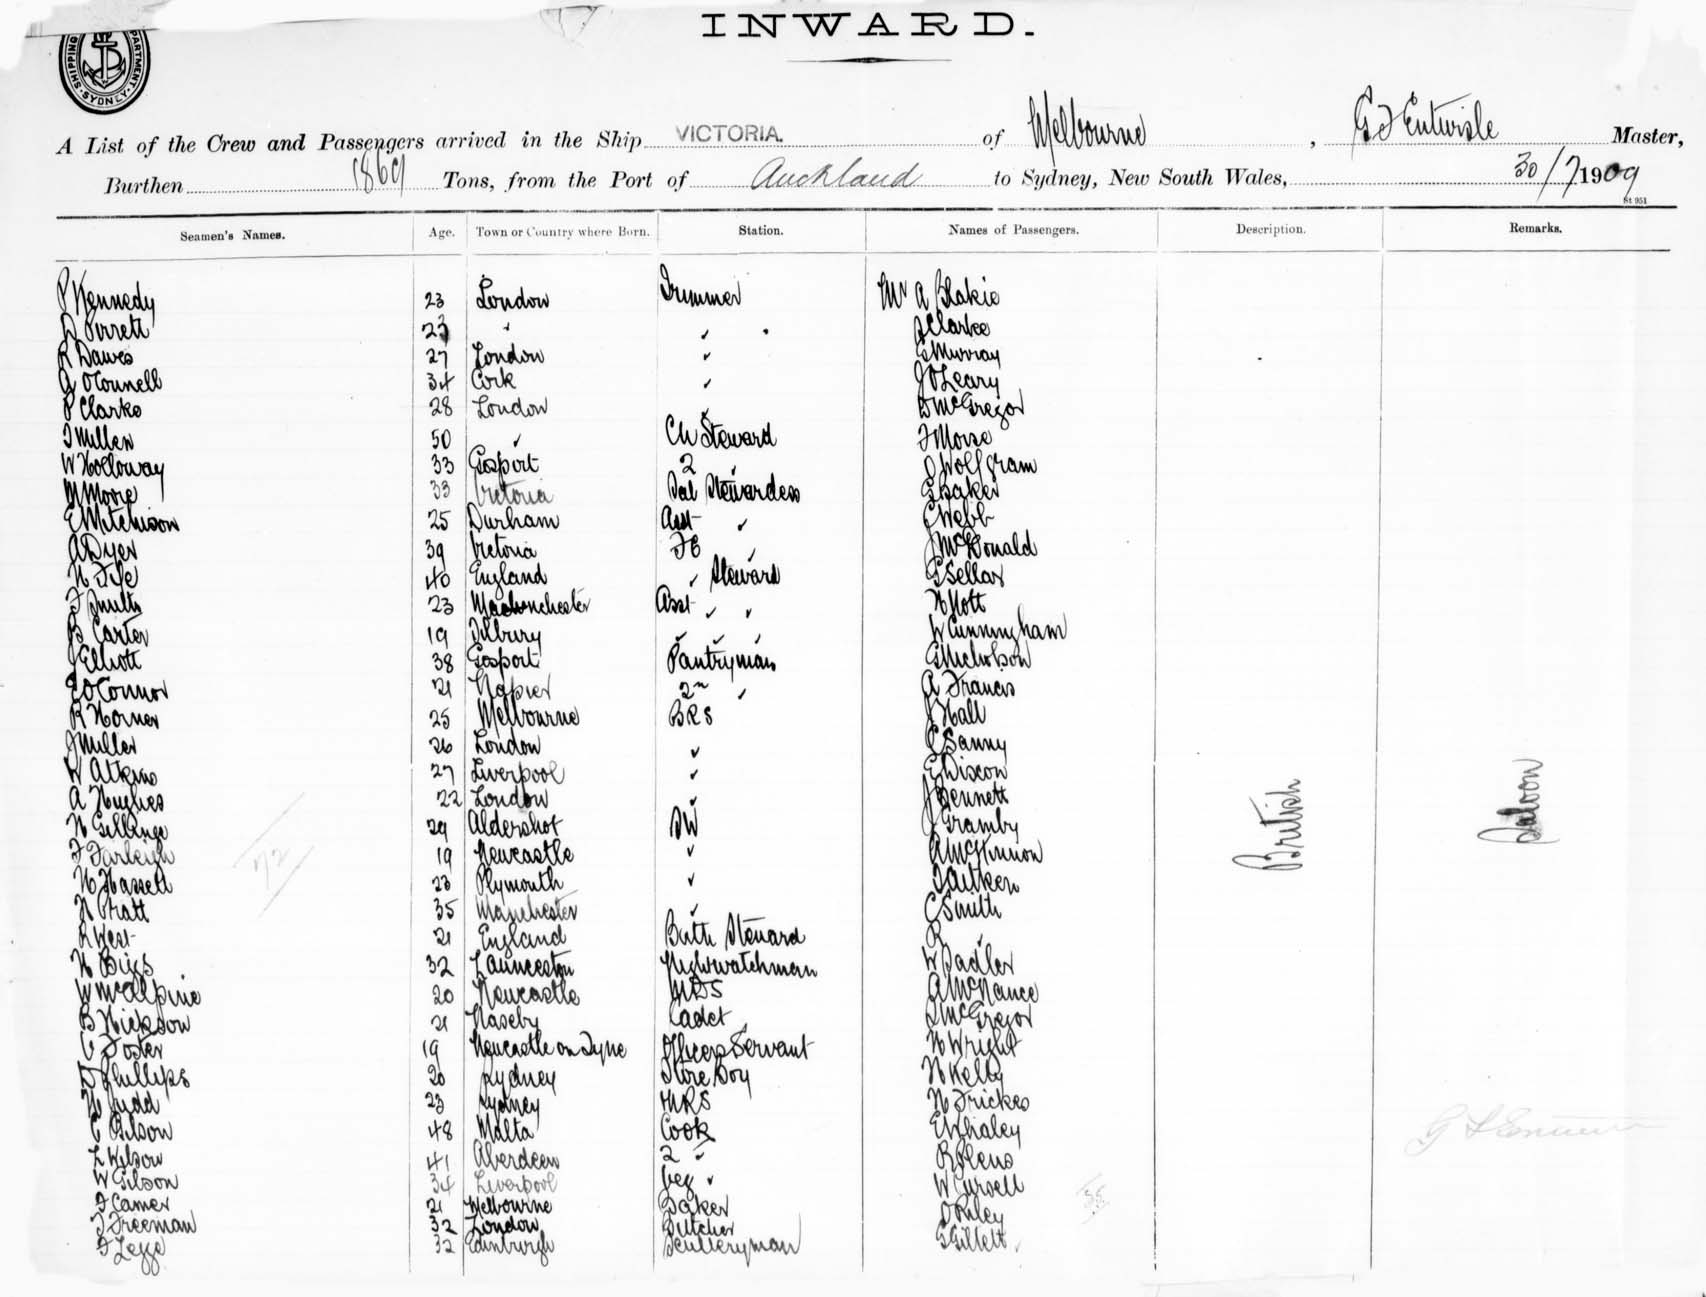 INWARD.
SHIPPING DEPARTMENT. SYDNEY.
A List of the Crew and Passengers arrived in the Ship VICTORIA. of Melbourne, G F Entwisle Master,
Burthen 1869 Tons, from the Port of Auckland to Sydney, New South Wales, 30/7/1909
St 951
Seamen's Names. Age. Town or Country where Born. Station. Names of Passengers. Description. Remarks.
P Kennedy 23 London Trimmer Mr A Blakie
Perrett 23 " " Clarke
R Dawes 27 London " G Murray
O'Connell 34 Cork " J O'Leary
P Clarke 28 London " D McGregor
J Miller 50 " Ch Steward F Morse
W Holloway 33 Gosport 2 " J Wolfgram
M Moore 33 Victoria Sal Stewardess G Baker
E Mitchison 25 Durham Asst " C Webb
A Dyer 39 Victoria FC " J McDonald
H Fyfe 40 England " Steward G Sellar
F Smith 23 Manchester Asst " " H Nott
B Carter 19 Tilbury " " " W Cunningham
J Elliott 38 Gosport Pantryman G Nicholson
E O'Connor 21 Napier 2nd " A Francis
R Horner 25 Melbourne BRS J Hall
J Miller 26 London " P Sanny
W Atkins 27 Liverpool " E Dixon
A Hughes 22 London " J Bennett
H Gillinge 29 Aldershot SW J Gramby
F Farleigh 19 Newcastle " A McKinnon
H Hassell 23 Plymouth " J Aitken
H Pratt 35 Manchester " C Smith
R West 21 England Bath Steward R "
H Biggs 32 Launceston Nightwatchman W Sadler
W McAlpine 20 Newcastle MSS A McNance
B Hickson 21 Naseby Cadet D McGregor
C Foster 19 Newcastle on Tyne Officers Servant H Wright
J Phillips 20 Sydney Store Boy H Kelly
H Judd 23 Sydney MRS H Frickes
C Bilson 48 Malta Cook E Whaley
L Wilson 41 Aberdeen 2 " R Plens
W Gilson 34 Liverpool Veg " W Cursell
F Camer 21 Melbourne Baker O Riley
J Freeman 32 London Butcher
F Legge 32 Edinburgh Sculleryman G Gillett
British
Saloon
72
35